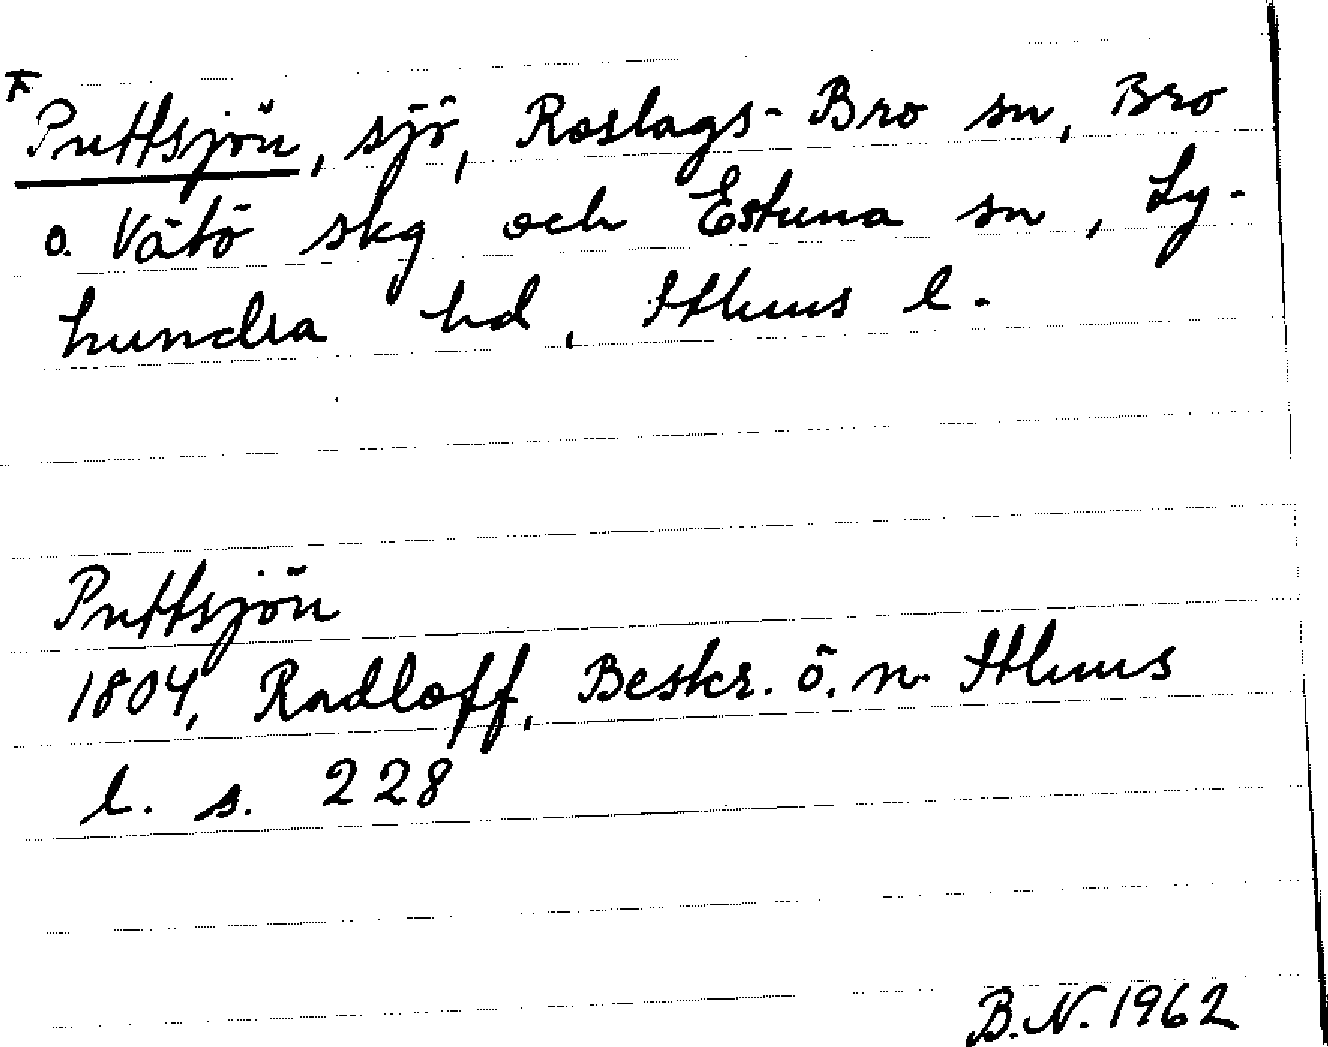 F
Puttsjön, sjö, Roslags-Bro sn, Bro
o. Vätö skg och Estuna sn, Ly-
hundra hd, Sthms l.
Puttsjön
1804, Radloff, Beskr. ö. n. Sthms
l. s. 228
B.N. 1962